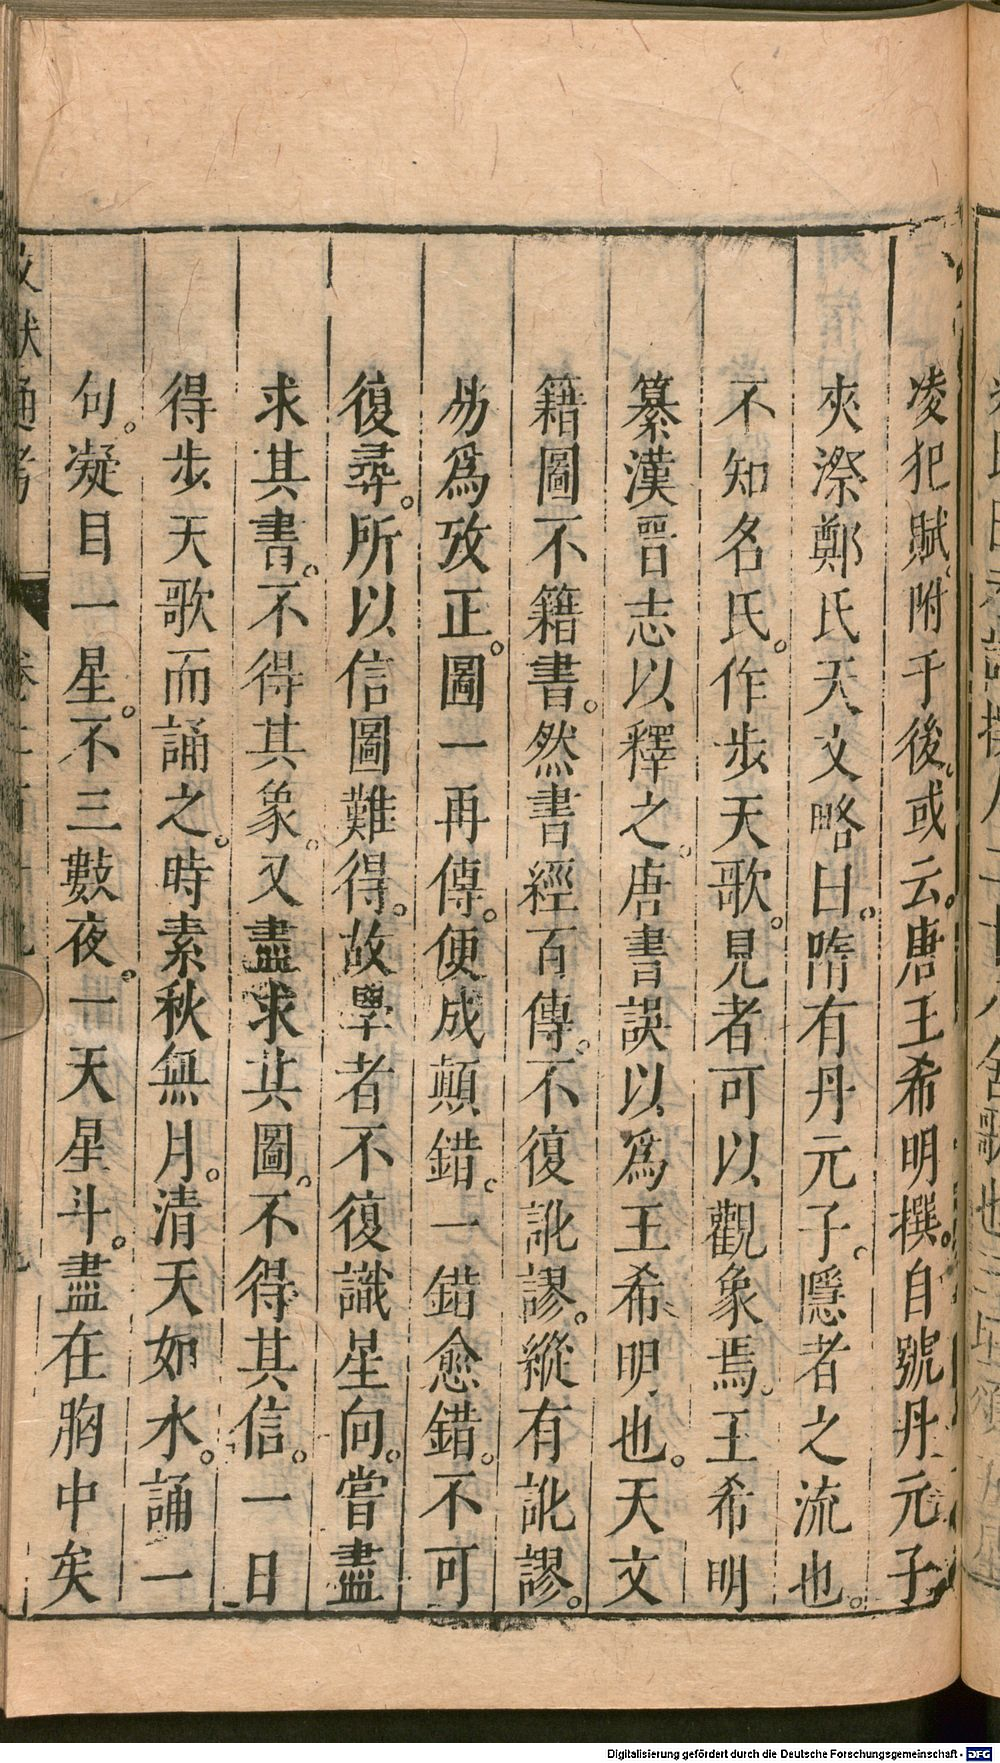 凌犯賦附于後或云唐王希明撰。自號丹元子
夾漈鄭氏天文略曰。隋有丹元子。隱者之流也。
不知名氏。作步天歌。見者可以觀象焉。王希明
纂漢晉志以釋之。唐書誤以爲王希明也。天文
籍圖不籍書。然書經百傳。不復訛謬。縱有訛謬。
易爲攷正。圖一再傳。便成顛錯。一錯愈錯。不可
復尋。所以信圖難得。故學者不復識星向。嘗盡
求其書。不得其象。又盡求其圖。不得其信。一日
得步天歌而誦之。時素秋無月。清天如水。誦一
句。凝目一星。不三數夜。一天星斗。盡在胸中矣
文獻通考
Digitalisierung gefördert durch die Deutsche Forschungsgemeinschaft - DFG